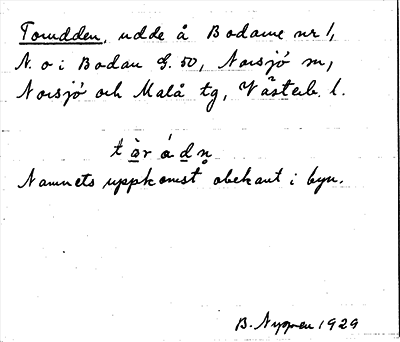 Torudden, udde å Bodarne nr 1,
N. o i Bodan G. 50, Norsjö sn,
Norsjö och Malå tg, Västerb. l.
t à r á d n
Namnets uppkomst obekant i byn.
B. Nyman 1929